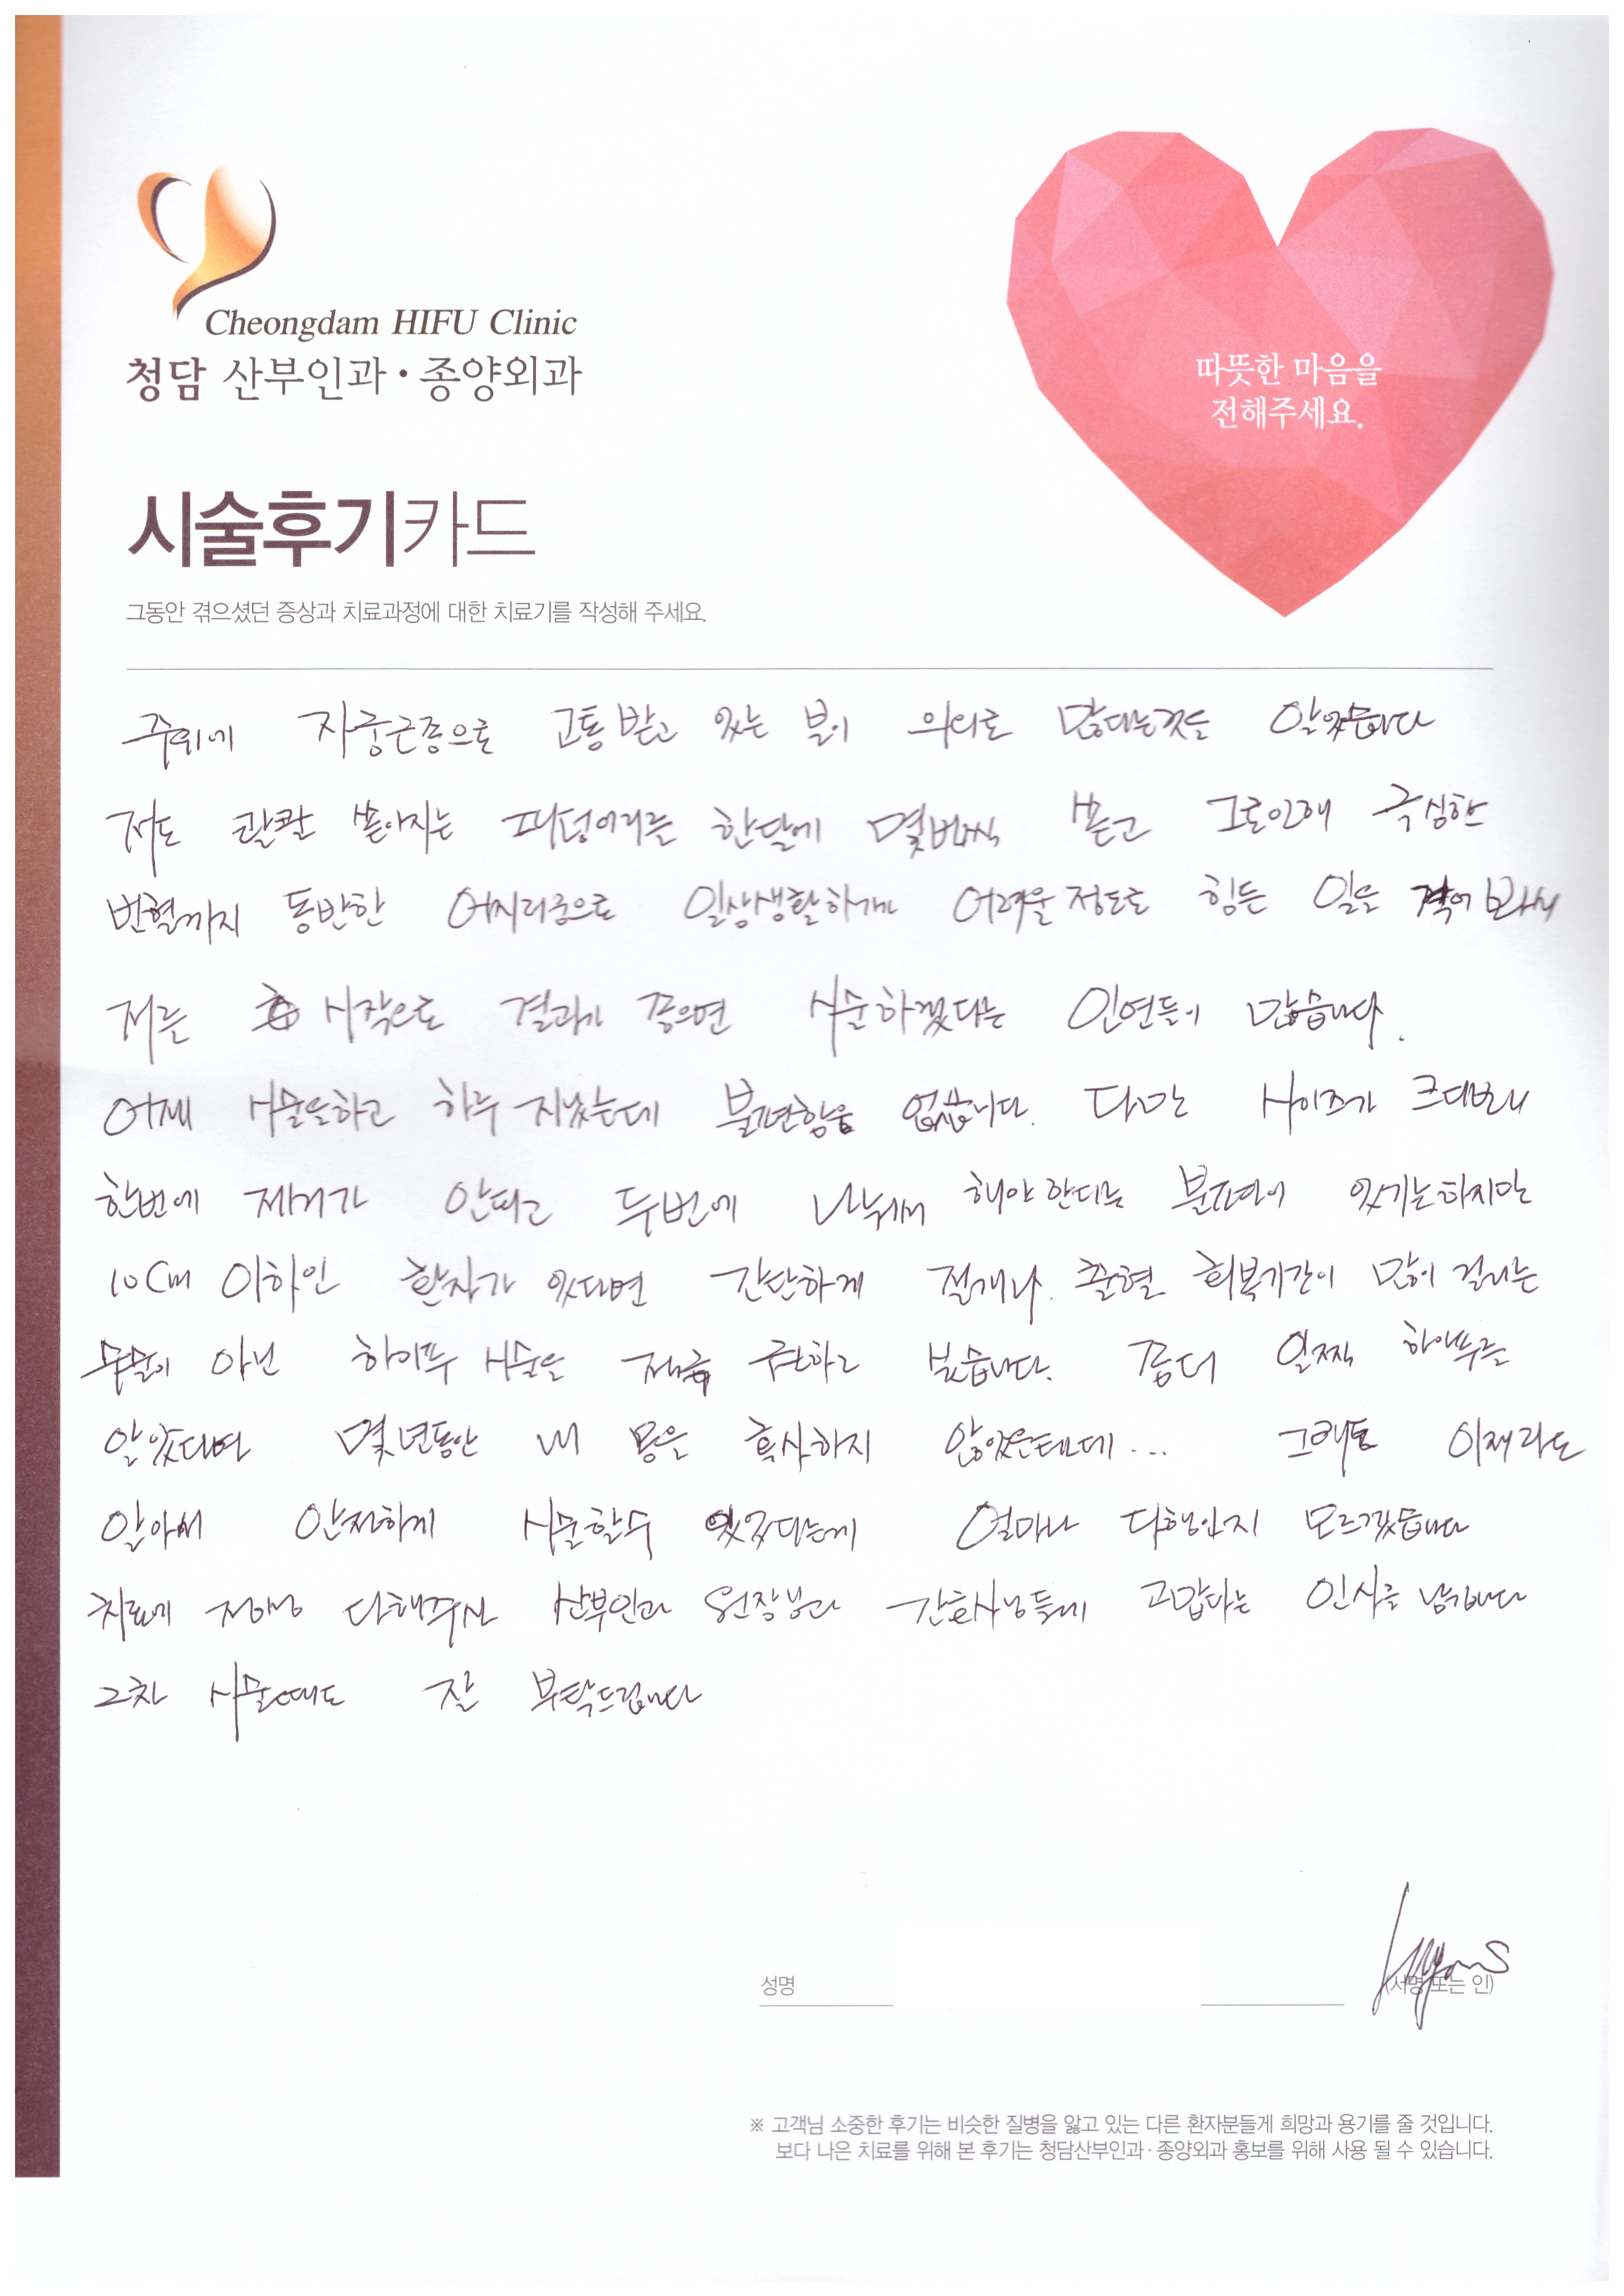 Cheongdam HIFU Clinic
청담 산부인과·종양외과
따뜻한 마음을
전해주세요.
시술후기카드
그동안 겪으셨던 증상과 치료과정에 대한 치료기를 작성해 주세요.
주위에 자궁근종으로 고통받고 있는 분이 의외로 많다는것을 알았습니다
저도 콸콸 쏟아지는 피덩어리를 한달에 몇번씩 쏟고 그로인해 극심한
빈혈까지 동반한 어지러움으로 일상생활하기가 어려울 정도로 힘든 일을 겪어봐서
저를 시작으로 결과가 좋으면 시술하겠다는 인연들이 많습니다.
어제 시술을하고 하루 지났는데 불편함은 없습니다. 다만 사이즈가 크다보니
한번에 제거가 안되고 두번에 나눠서 해야한다는 불편이 있기는하지만
10cm 이하인 환자가 있다면 간단하게 절개나 출혈 회복기간이 많이 걸리는
수술이 아닌 하이푸 시술을 적극 권하고 싶습니다. 좀더 일찍 하이푸를
알았다면 몇년동안 내 몸을 혹사하지 않았을텐데... 그래도 이제라도
알아서 안전하게 시술할수 있었다는게 얼마나 다행인지 모르겠습니다
치료에 정성 다해주신 산부인과 원장님과 간호사님들께 고맙다는 인사를 남깁니다
2차 시술때도 잘 부탁드립니다
성명 (서명 또는 인)
※ 고객님 소중한 후기는 비슷한 질병을 앓고 있는 다른 환자분들게 희망과 용기를 줄 것입니다.
보다 나은 치료를 위해 본 후기는 청담산부인과·종양외과 홍보를 위해 사용 될 수 있습니다.